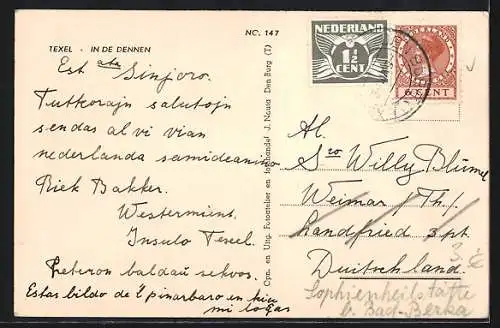 NC. 147
TEXEL - IN DE DENNEN
Est ata Sinjoro.
Tutkorajn salutojn
sendas al vi vian
nederlanda samideanino
Riek Bakker.
Westermient.
Insulo Texel.
Leteron baldaŭ sekvos.
Estas bildo de l' pinarbaro en kiu
mi loĝas
Cpn. en Uitg. Fotoatelier en Boekhandel J. Nauta Den Burg (T)
NEDERLAND
1½
CENT
NEDERLAND
6 CENT
Al.
Sro Willy Blümel
Weimar /Th/.
Landfried 3 pt.
Duitschland.
Sophienheilstätte
b. Bad-Berka